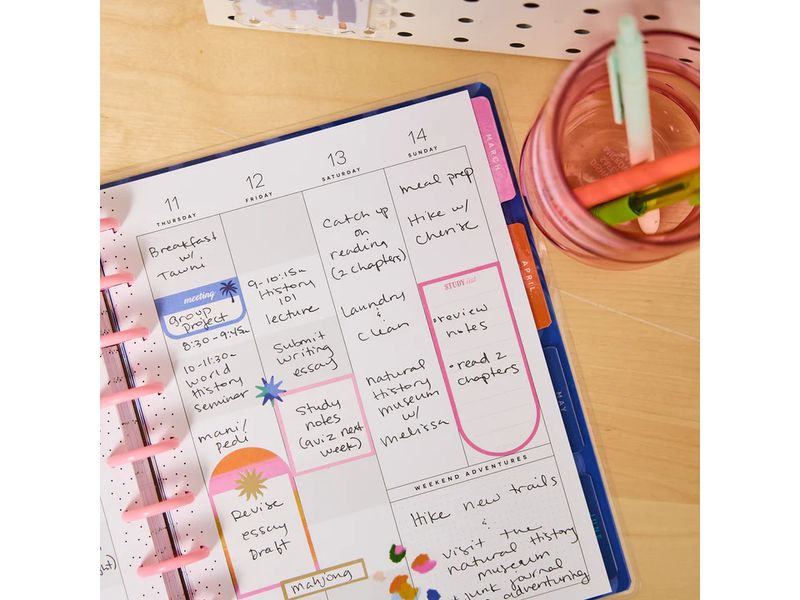 11
THURSDAY
Breakfast
w/
Tawni
meeting
group
project
8:30-9:45a
10-11:30a
world
History
seminar
mani/
pedi
Revise
essay
Draft
12
FRIDAY
9-10:15a
History
101
lecture
Submit
writing
essay
Study
notes
(quiz next
week)
mahjong
13
SATURDAY
Catch up
on
reading
(2 chapters)
Laundry
&
clean
natural
History
museum
w/
melissa
14
SUNDAY
meal prep
Hike w/
STUDY
•review
notes
•read 2
chapters
WEEKEND ADVENTURES
Hike new trails
&
visit the
natural History
museum
junk journal
adventuring
MARCH
APRIL
MAY
JUNE